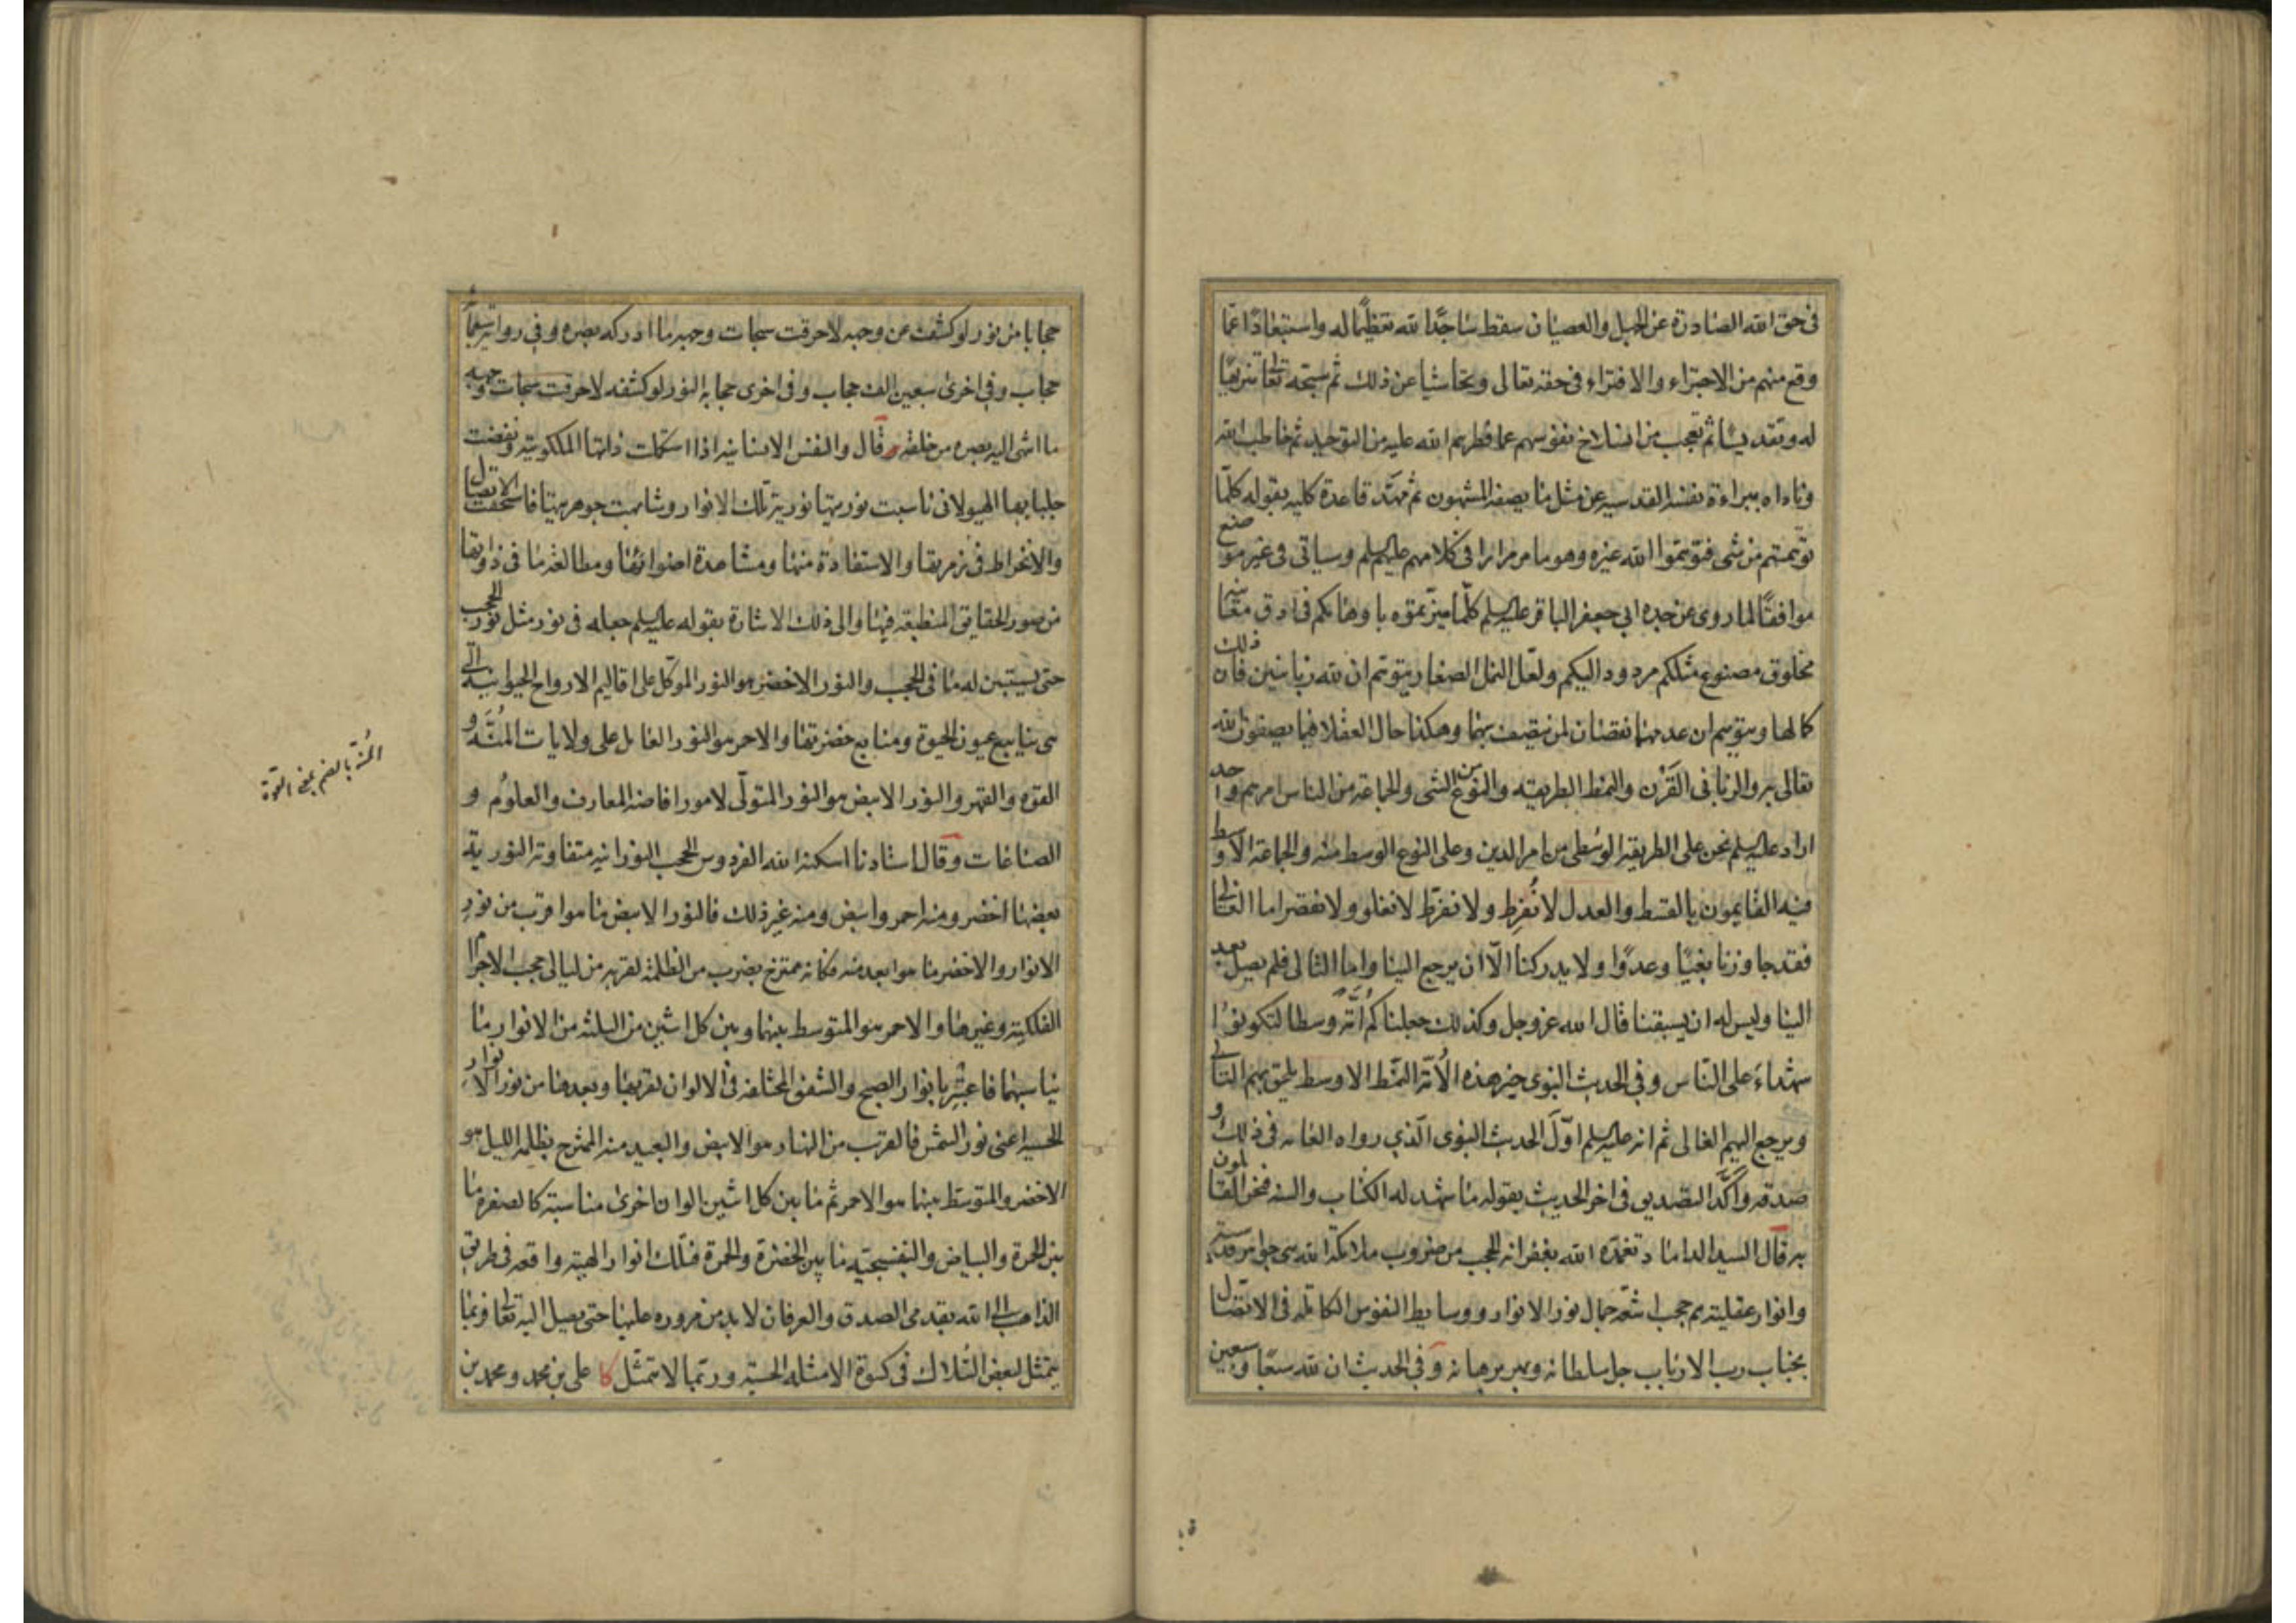 في حق الله الصادرة عن الجهل والعصيان سقط ساجدًا لله تعظيمًا له واستبعادًا عمّا
وقع منهم من الاجتراء والافتراء في حقه تعالى وتحاشيا عن ذلك ثم سبحه تعالى تنزيهًا
له وتقديسًا ثم تعجب من انسلاخ نفوسهم عما فطرهم الله عليه من التوحيد ثم خاطب الله
وناداه ببراءة نفسه القدسيه عن مثل ما يصفه المشبهون ثم مهّد قاعدة كليه بقوله كلّما
توهمتم من شئ فتوهموا الله غيره وهو مما مر مرارا في كلامهم عليهم السلم وسياتي في غير موضع
موافقًا لما روى عن جده ابي جعفر الباقر عليه السلم كلّما ميزتموه باوهامكم في ادق معانيه
مخلوق مصنوع مثلكم مردود اليكم ولعّل النمل الصغار يتوهم ان لله زبانيتين فان ذلك
كمالها ويتوهم ان عدمهما نقصان لمن لا يتصف بهما وهكذا حال العقلا فيما يصفون الله
تعالى به والربا في القرن والنمط الطريقه والنوع من الشئ والجماعة من الناس امرهم واحد
اراد عليه السلم نحن على الطريقه الوسطى من امر الدين وعلى النوع الوسط منه والجماعة الاوسط
فيه القايمون بالقسط والعدل لا نُفرِط ولا نفرّط لا نغلو ولا نقصر اما الغالي
فقد جاوزنا بغيًا وعدوًا ولا يدركنا الّا ان يرجع الينا واما التالى فلم يصل بعد
الينا وليس له ان يسبقنا قال الله عز وجل وكذلك جعلناكم اُمّة وسطا لتكونوا
شهداءَ على النّاس وفي الحديث النبوى خير هذه الاُمّة النمّط الاوسط يلحق بهم التالي
ويرجع اليهم الغالى ثم انه عليه السلم اوّلَ الحديث النبوى الّذي رواه العامه في ذلك و
صدقه واكَّد التصديق في اخر الحديث بقوله ما شهد له الكتاب والسنه فنحن القائلون
به قال السيد الداماد تغمّده الله بغفرانه الحجب من ضروب ملائكة الله هى جواهر قدسية
وانوار عقليته هم حجب اشعّه جمال نور الانوار ووسايط النفوس الكاملة في الاتصال
بجناب رب الارباب جل سلطانه وبهر برهانه وفي الحديث ان لله سبعًا وسبعين
حجابا من نور لو كشفت عن وجهه لاحرقت سبحات وجهه ما ادركه بصره وفي رواية سبعمائة
حجاب وفي اخرى سبعين الف حجاب وفي اخرى حجابه النور لو كشفه لاحرقت سبحات وجهه
ما انتهى اليه بصره من خلقه قال والنفس الانسانيه اذا استكملت ذاتها الملكوتيّه ونفضت
جلبابها الهيولانى ناسبت نوريتها نورية تلك الانوار وشابهت جوهريتها فاستحقت الاتصال
والانخراط في زمرتها والاستفادة منها ومشاهدة اضوائها ومطالعة ما في ذواتها
من صور الحقايق المنطبعه فيها والى ذلك الاشارة بقوله عليه السلم جعله في نور مثل نور الحجب
حتى يستبين له ما في الحجب والنور الاخضر هو النور الموكّل على اقاليم الارواح الحيوانيه التي
هى ينابيع عيون الحيوة ومنابع خضرتها والاحمر هو النور العامل على ولايات المُنَّة و
القوة والقهر والنور الابيض هو النور المتولّى لامور افاضه المعارف والعلوم و
الصناعات وقال استادنا اسكنه الله الفردوس الحجب النورانيه متفاوتة النورية
بعضها اخضر ومنه احمر وابيض ومنه غير ذلك فالنور الابيض ما هو اقرب من نور
الانوار والاخضر ما هو ابعد منه فكانه ممتزج بضرب من الظلمه لقربه من ليالى حجب الاجرام
الفلكيّة وغيرها والاحمر هو المتوسط بينهما وبين كل اثنين من الثلثه من الانوار ما
يناسبهما فاعتبر بانوار الصبح والشفق المختلفه في الالوان لقربها وبعدها من نور الانوار
الحسيه اعنى نور الشمس فالقرب من النهار هو الابيض والبعيد منه الممتزج بظلمة الليل هو
الاخضر والمتوسط بينهما هو الاحمر ثم ما بين كل اثنين الوان اخرى مناسبة كالصفرة ما
بين الحمرة والبياض والبنفسجية ما بين الخضرة والحمرة فتلك انوار الهية واقعه في طريق
الذاهب الى الله بقدمى الصدق والعرفان لا بد من مروره عليها حتى يصل اليه تعالى فربما
يتمثل لبعض السُلاك في كسوة الامثله الحسيه وربما لا تتمثّل كا على بن محمد ومحمد بن
المُنَّة بالضم بمعنى القوة